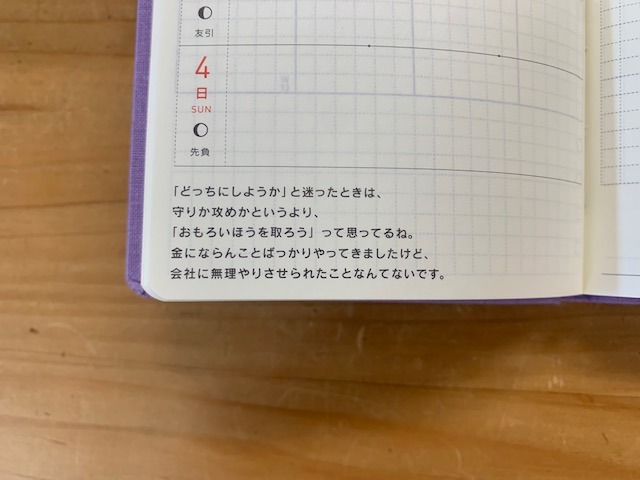 友引
4
日
SUN
先負
「どっちにしようか」と迷ったときは、
守りか攻めかというより、
「おもろいほうを取ろう」って思ってるね。
金にならんことばっかりやってきましたけど、
会社に無理やりさせられたことなんてないです。